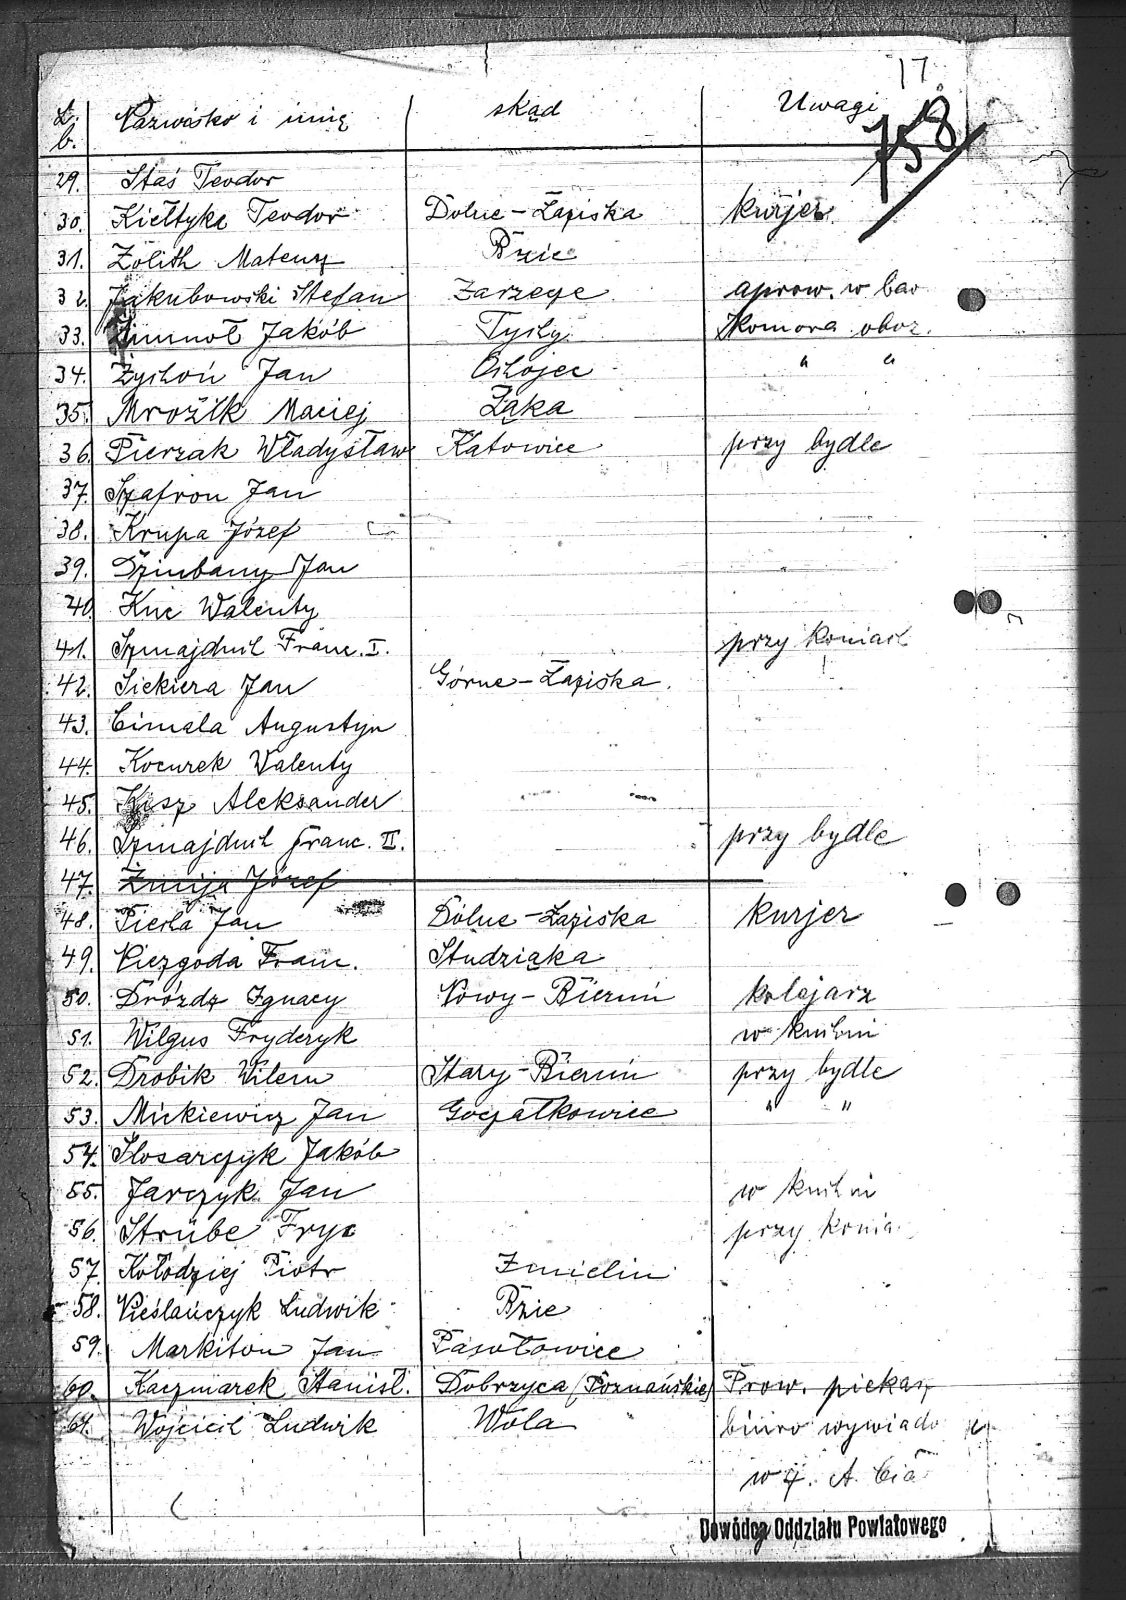 17.
L. b. Nazwisko i imię skąd Uwagi
758
29. Staś Teodor
30. Kiełtyka Teodor Dolne-Łaziska kurjer
31. Zolith Mateusz Bzie
32. Jakubowski Stefan Zarzeye aprow. w bao
33. Jakób Tychy Komora oboz.
34. Zychoń Jan Ochojec " "
35. Mrozik Maciej Łąka
36. Pierzak Władysław Katowice przy bydle
37. Szafron Jan
38. Krupa Józef
39. Dziubany Jan
40. Kuc Walenty
41. Szmajduch Franc. I. przy koniach
42. Siekiera Jan Górne-Łaziska.
43. Cimala Augustyn
44. Kocurek Walenty
45. Kisz Aleksander
46. Szmajduch Franc. II. przy bydle
47. Żmija Józef
48. Piecha Jan Dolne-Łaziska kurjer
49. Niezgoda Franc. Studziąka
50. Drózdz Ignacy Nowy-Bieruń kolejarz
51. Wilgus Fryderyk w kuchni
52. Drobik Wilem Stary-Bieruń przy bydle
53. Mickiewicz Jan Goczałkowice " "
54. Slosarczyk Jakób
55. Jarczyk Jan w kuchni
56. Strube Fryc przy konia
57. Kołodziej Piotr Imielin
58. Cieślańczyk Ludwik Bzie
59. Markiton Jan Pasołowice
60. Kaczmarek Stanisł. Dobrzyca (Poznańskie) Prow. piekarz
61. Wojciech Ludwik Wola biuro wywiado
w 4. A.
Dowódca Oddziału Powiatowego